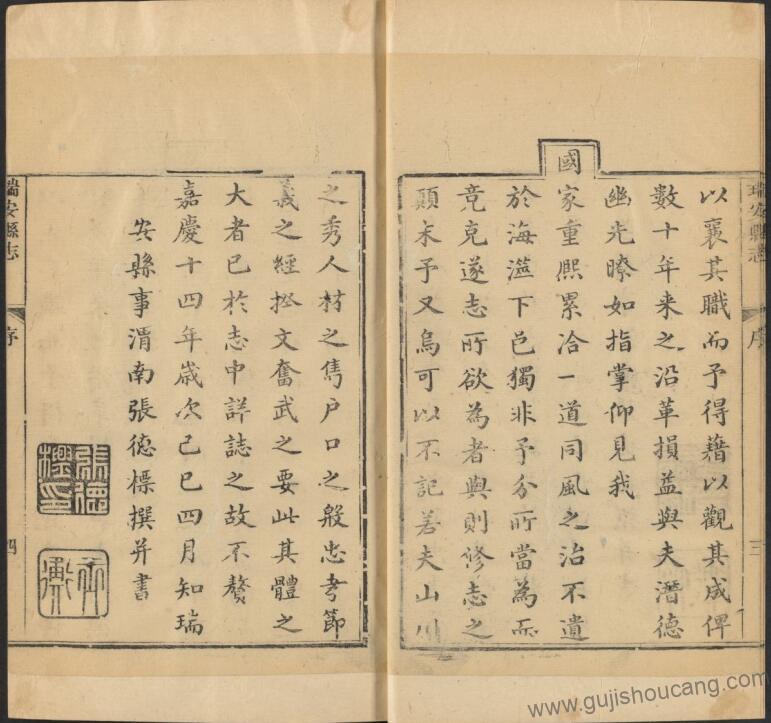 瑞安縣志
序
三
以襄其職而予得藉以觀其成俾
數十年来之沿革損益與夫潛德
幽光瞭如指掌仰見我
國家重熙累洽一道同風之治不遺
於海澨下邑獨非予分所當為而
竞克遂志所欲為者與則修志之
顛末予又烏可以不記若夫山川
之秀人材之雋户口之殷忠孝節
義之經揆文奮武之要此其體之
大者已於志中詳誌之故不贅
嘉慶十四年歲次己巳四月知瑞
安縣事渭南張德標撰并書
張德標印
瑞安縣志
序
四
www.gujishoucang.com